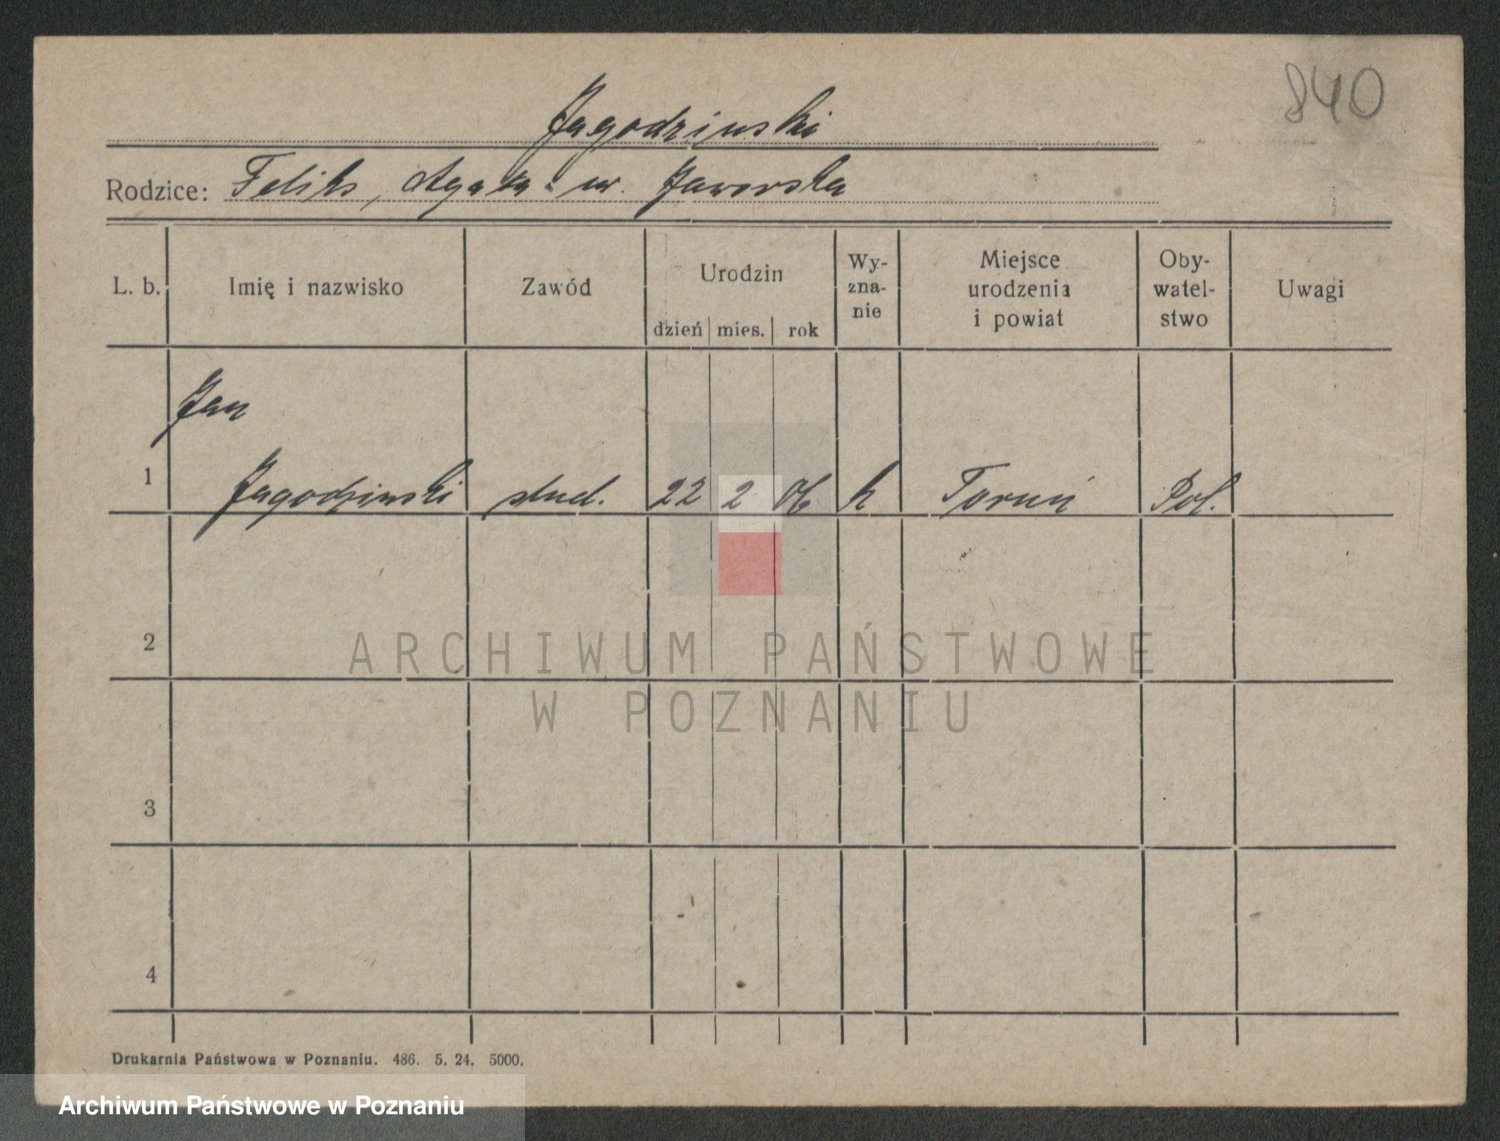 840
Jagodzinski
Rodzice: Feliks, Agata ur. Jaworska
L. b. Imię i nazwisko Zawód Urodzin dzień mies. rok Wy-zna-nie Miejsce urodzenia i powiat Oby-watel-stwo Uwagi
Jan
1 Jagodzinski stud. 22 2 06 k Toruń Pol.
2
ARCHIWUM PAŃSTWOWE
W POZNANIU
3
4
Drukarnia Państwowa w Poznaniu. 486. 5. 24. 5000.
Archiwum Państwowe w Poznaniu